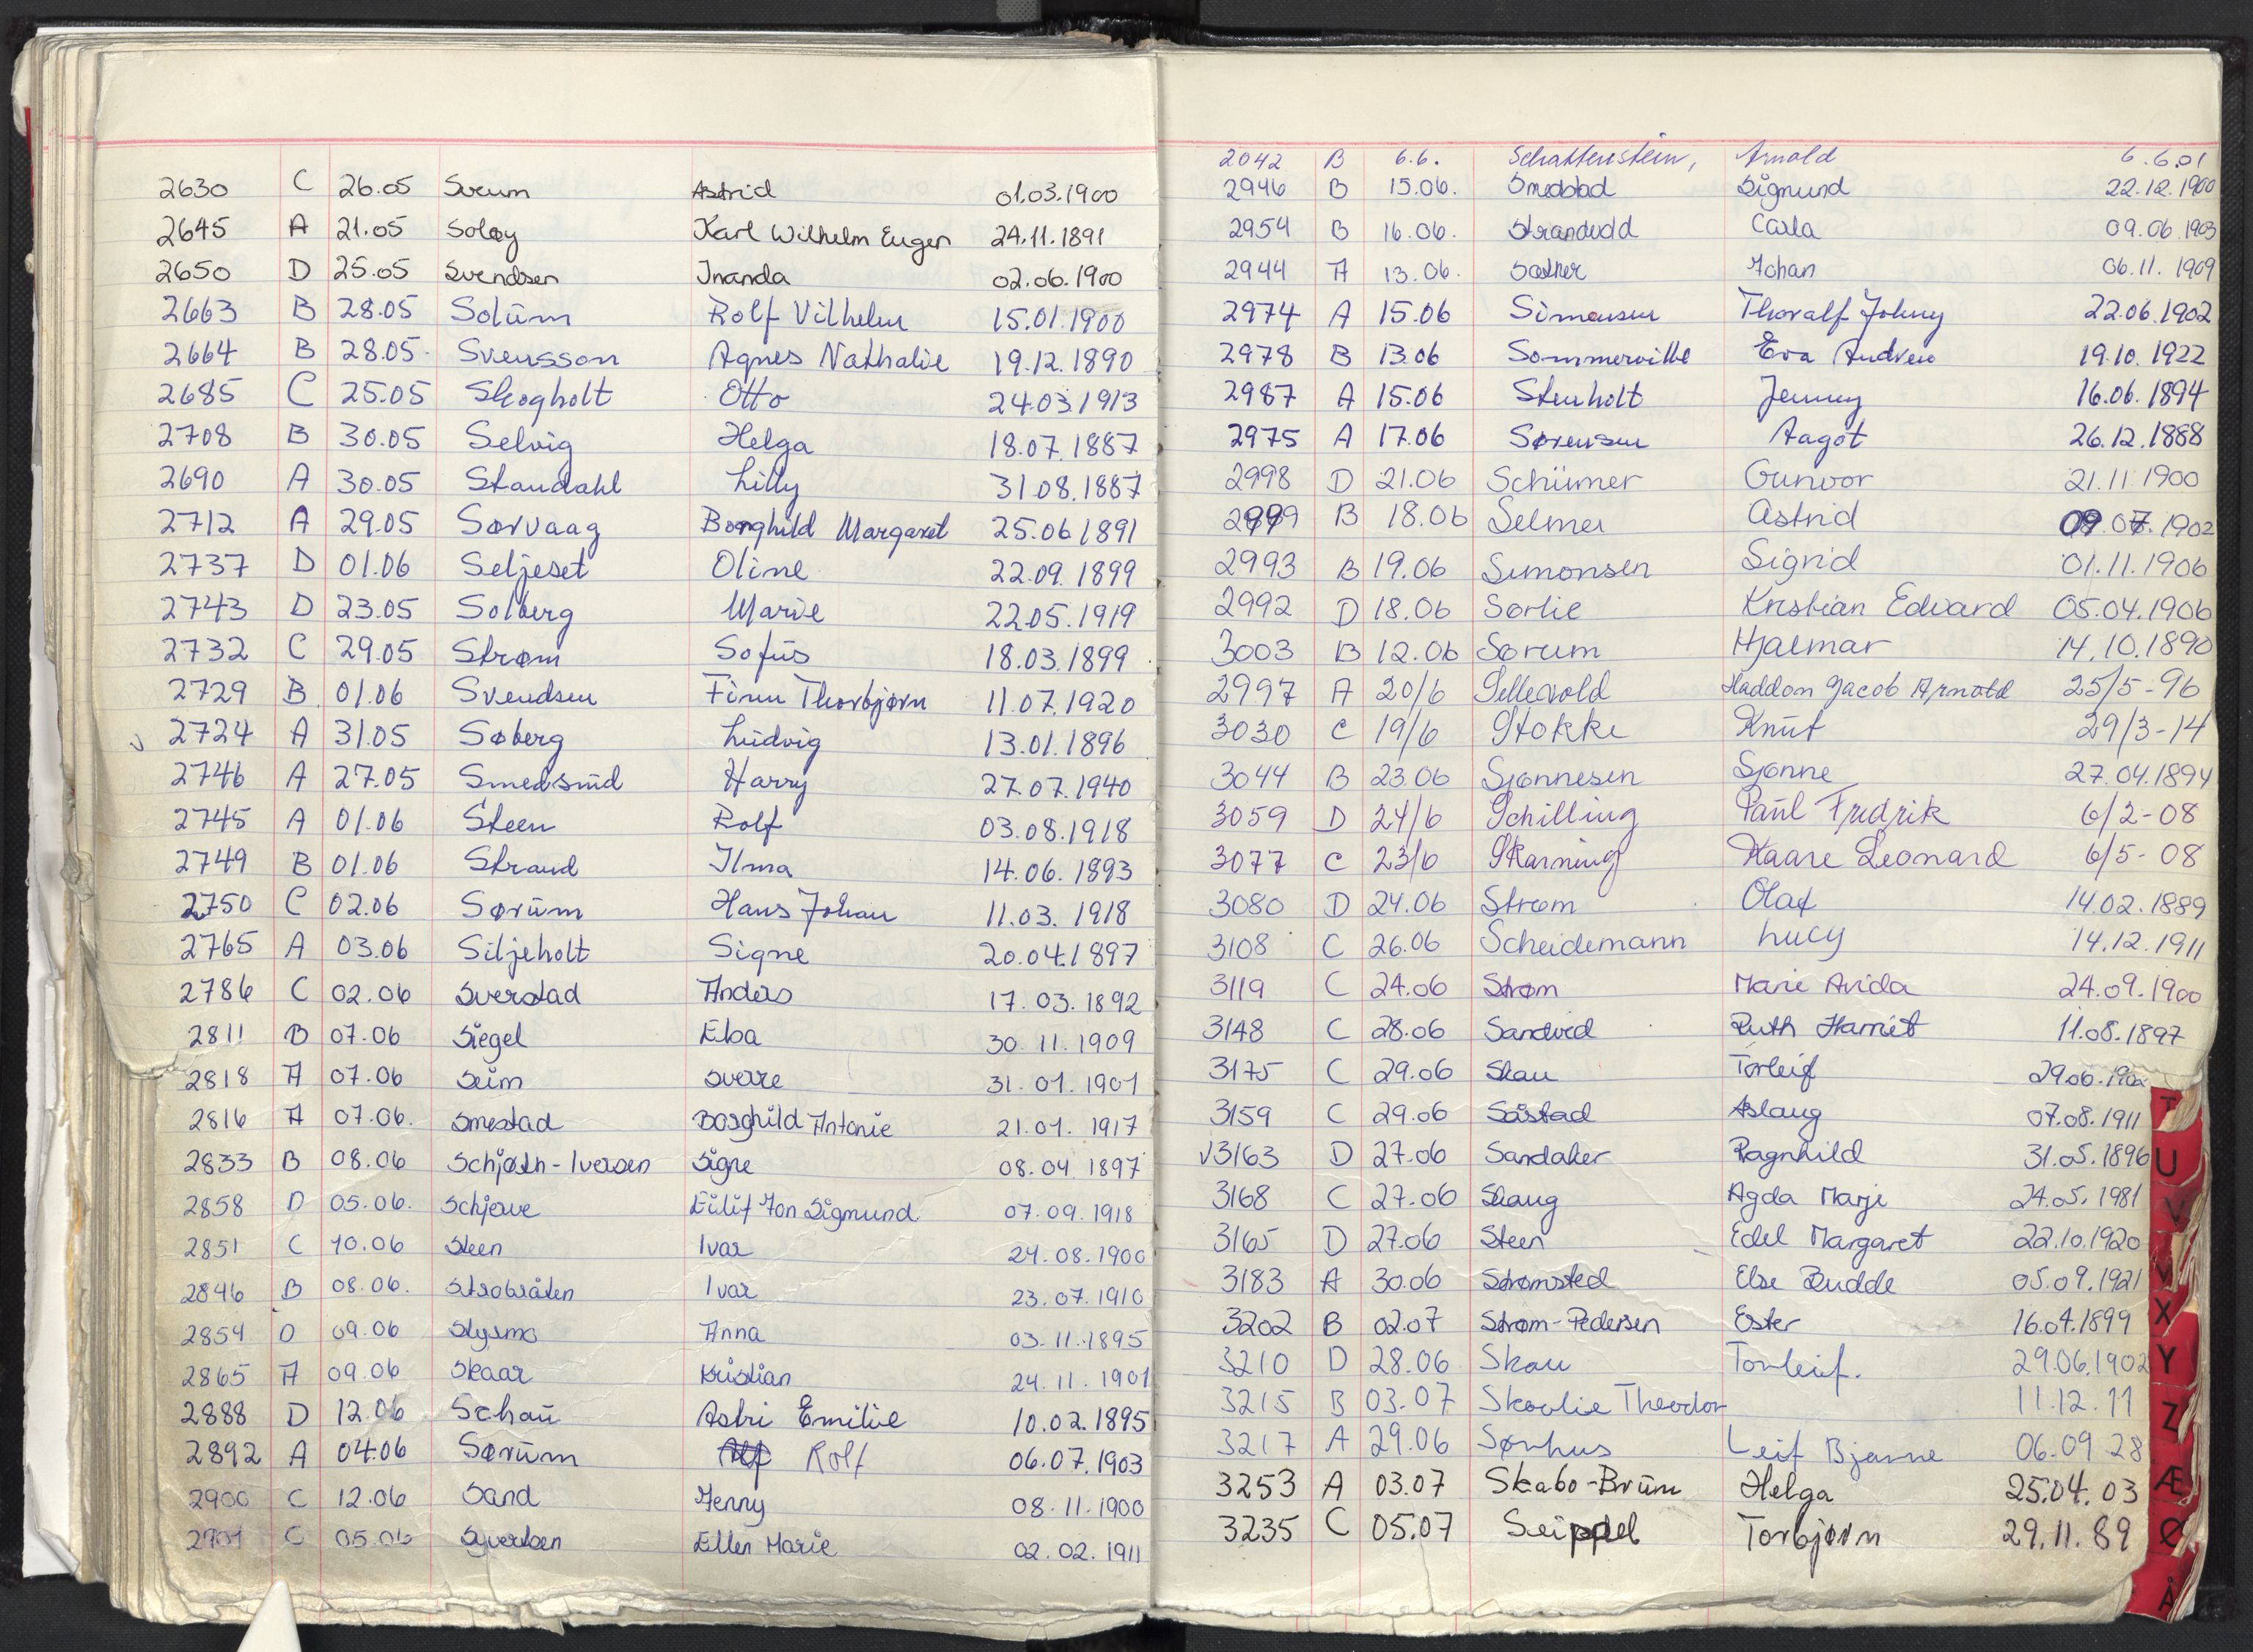 2630 C 26.05 Sveum Astrid 01.03.1900
2645 A 21.05 Soløy Karl Wilhelm Eugen 24.11.1891
2650 D 25.05 Svendsen Inanda 02.06.1900
2663 B 28.05 Solum Rolf Vilhelm 15.01.1900
2664 B 28.05 Svensson Agnes Nathalie 19.12.1890
2685 C 25.05 Skogholt Otto 24.03.1913
2708 B 30.05 Selvig Helga 18.07.1887
2690 A 30.05 Standahl Lilly 31.08.1887
2712 A 29.05 Sørvaag Borghild Margaret 25.06.1891
2737 D 01.06 Seljeset Oline 22.09.1899
2743 D 23.05 Solberg Marie 22.05.1919
2732 C 29.05 Strøm Sofus 18.03.1899
2729 B 01.06 Svendsen Finn Thorbjørn 11.07.1920
2724 A 31.05 Søberg Ludvig 13.01.1896
2746 A 27.05 Smedsrud Harry 27.07.1940
2745 A 01.06 Steen Rolf 03.08.1918
2749 B 01.06 Strand Ilma 14.06.1893
2750 C 02.06 Sørum Hans Johan 11.03.1918
2765 A 03.06 Siljeholt Signe 20.04.1897
2786 C 02.06 Sverstad Anders 17.03.1892
2811 B 07.06 Siegel Eba 30.11.1909
2818 A 07.06 Seim Sverre 31.01.1901
2816 A 07.06. Smestad Borghild Antonie 21.01.1917
2833 B 08.06 Schjøth-Iversen Signe 08.04 1897
2858 D 05.06. Schjerve Eilif Jon Sigmund 07.09.1918
2851 C 10.06 Steen Ivar 24.08.1900
2846 B 08.06. Strobråten Ivar 23.07.1910
2854 D 09.06 Slysmo Anna 03.11.1895
2865 A 09.06 Skaar Kristian 24.11.1901
2888 D 12.06 Schau Astri Emilie 10.02.1895
2892 A 04.06 Sørum Rolf 06.07.1903
2900 C 12.06 Sand Jenny 08.11.1900
2901 C 05.06 Syvertsen Ellen Marie 02.02.1911
2042 B 6.6. Schattenstein, Arnold 6.6.01
2946 B 15.06. Smedstad Sigmund 22.12.1900
2954 B 16.06. Strandvold Carla 09.06.1903
2944 A 13.06. Sæther Johan 06.11.1909
2974 A 15.06 Simensen Thoralf Johny 22.06.1902
2978 B 13.06 Sommerville Eva Andrew 19.10.1922
2987 A 15.06 Stenholt Jenny 16.06.1894
2975 A 17.06 Sørensen Aagot 26.12.1888
2998 D 21.06 Schümer Gunvor 21.11.1900
2999 B 18.06 Selmer Astrid 09.07.1902
2993 B 19.06 Simonsen Sigrid 01.11.1906
2992 D 18.06 Sørlie Kristian Edvard 05.04.1906
3003 B 12.06 Sørum Hjalmar 14.10.1890
2997 A 20/6 Sellevold Haddon Jacob Arnold 25/5-96
3030 C 19/6 Stokke Knut 29/3-14
3044 B 23.06 Sjonnesen Sjonne 27.04.1894
3059 D 24/6 Schilling Paul Fredrik 6/2-08
3077 C 23/6 Skarning Kaare Leonard 6/5-08
3080 D 24.06 Strøm Olaf 14.02.1889
3108 C 26.06 Scheidemann Lucy 14.12.1911
3119 C 24.06 Strøm Marie Avida 24.09.1900
3148 C 28.06 Sandved Ruth Harriet 11.08.1897
3175 C 29.06 Skau Torleif 29.06.1902
3159 C 29.06 Såstad Aslaug 07.08.1911
3163 D 27.06 Sandaker Ragnhild 31.05.1896
3168 C 27.06 Skaug Agda Marje 24.05.1981
3165 D 27.06 Steen Edel Margaret 22.10.1920
3183 A 30.06 Strømsted Else Budde 05.09.1921
3202 B 02.07 Strøm-Pedersen Ester 16.07.1899
3210 D 28.06 Skau Torleif. 29.06.1902
3215 B 03.07 Skovlie Theodor 11.12.11
3217 A 29.06 Sønhus Leif Bjarne 06.09 28
3253 A 03.07 Skabo-Brun Helga 25.04.03
3235 C 05.07 Seippel Torbjørn 29.11.89
T
U
V
X
Y
Z
Æ
Ø
Å